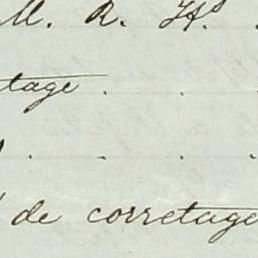 M. R. Hs.
tage . . .
. . . .
de corretage